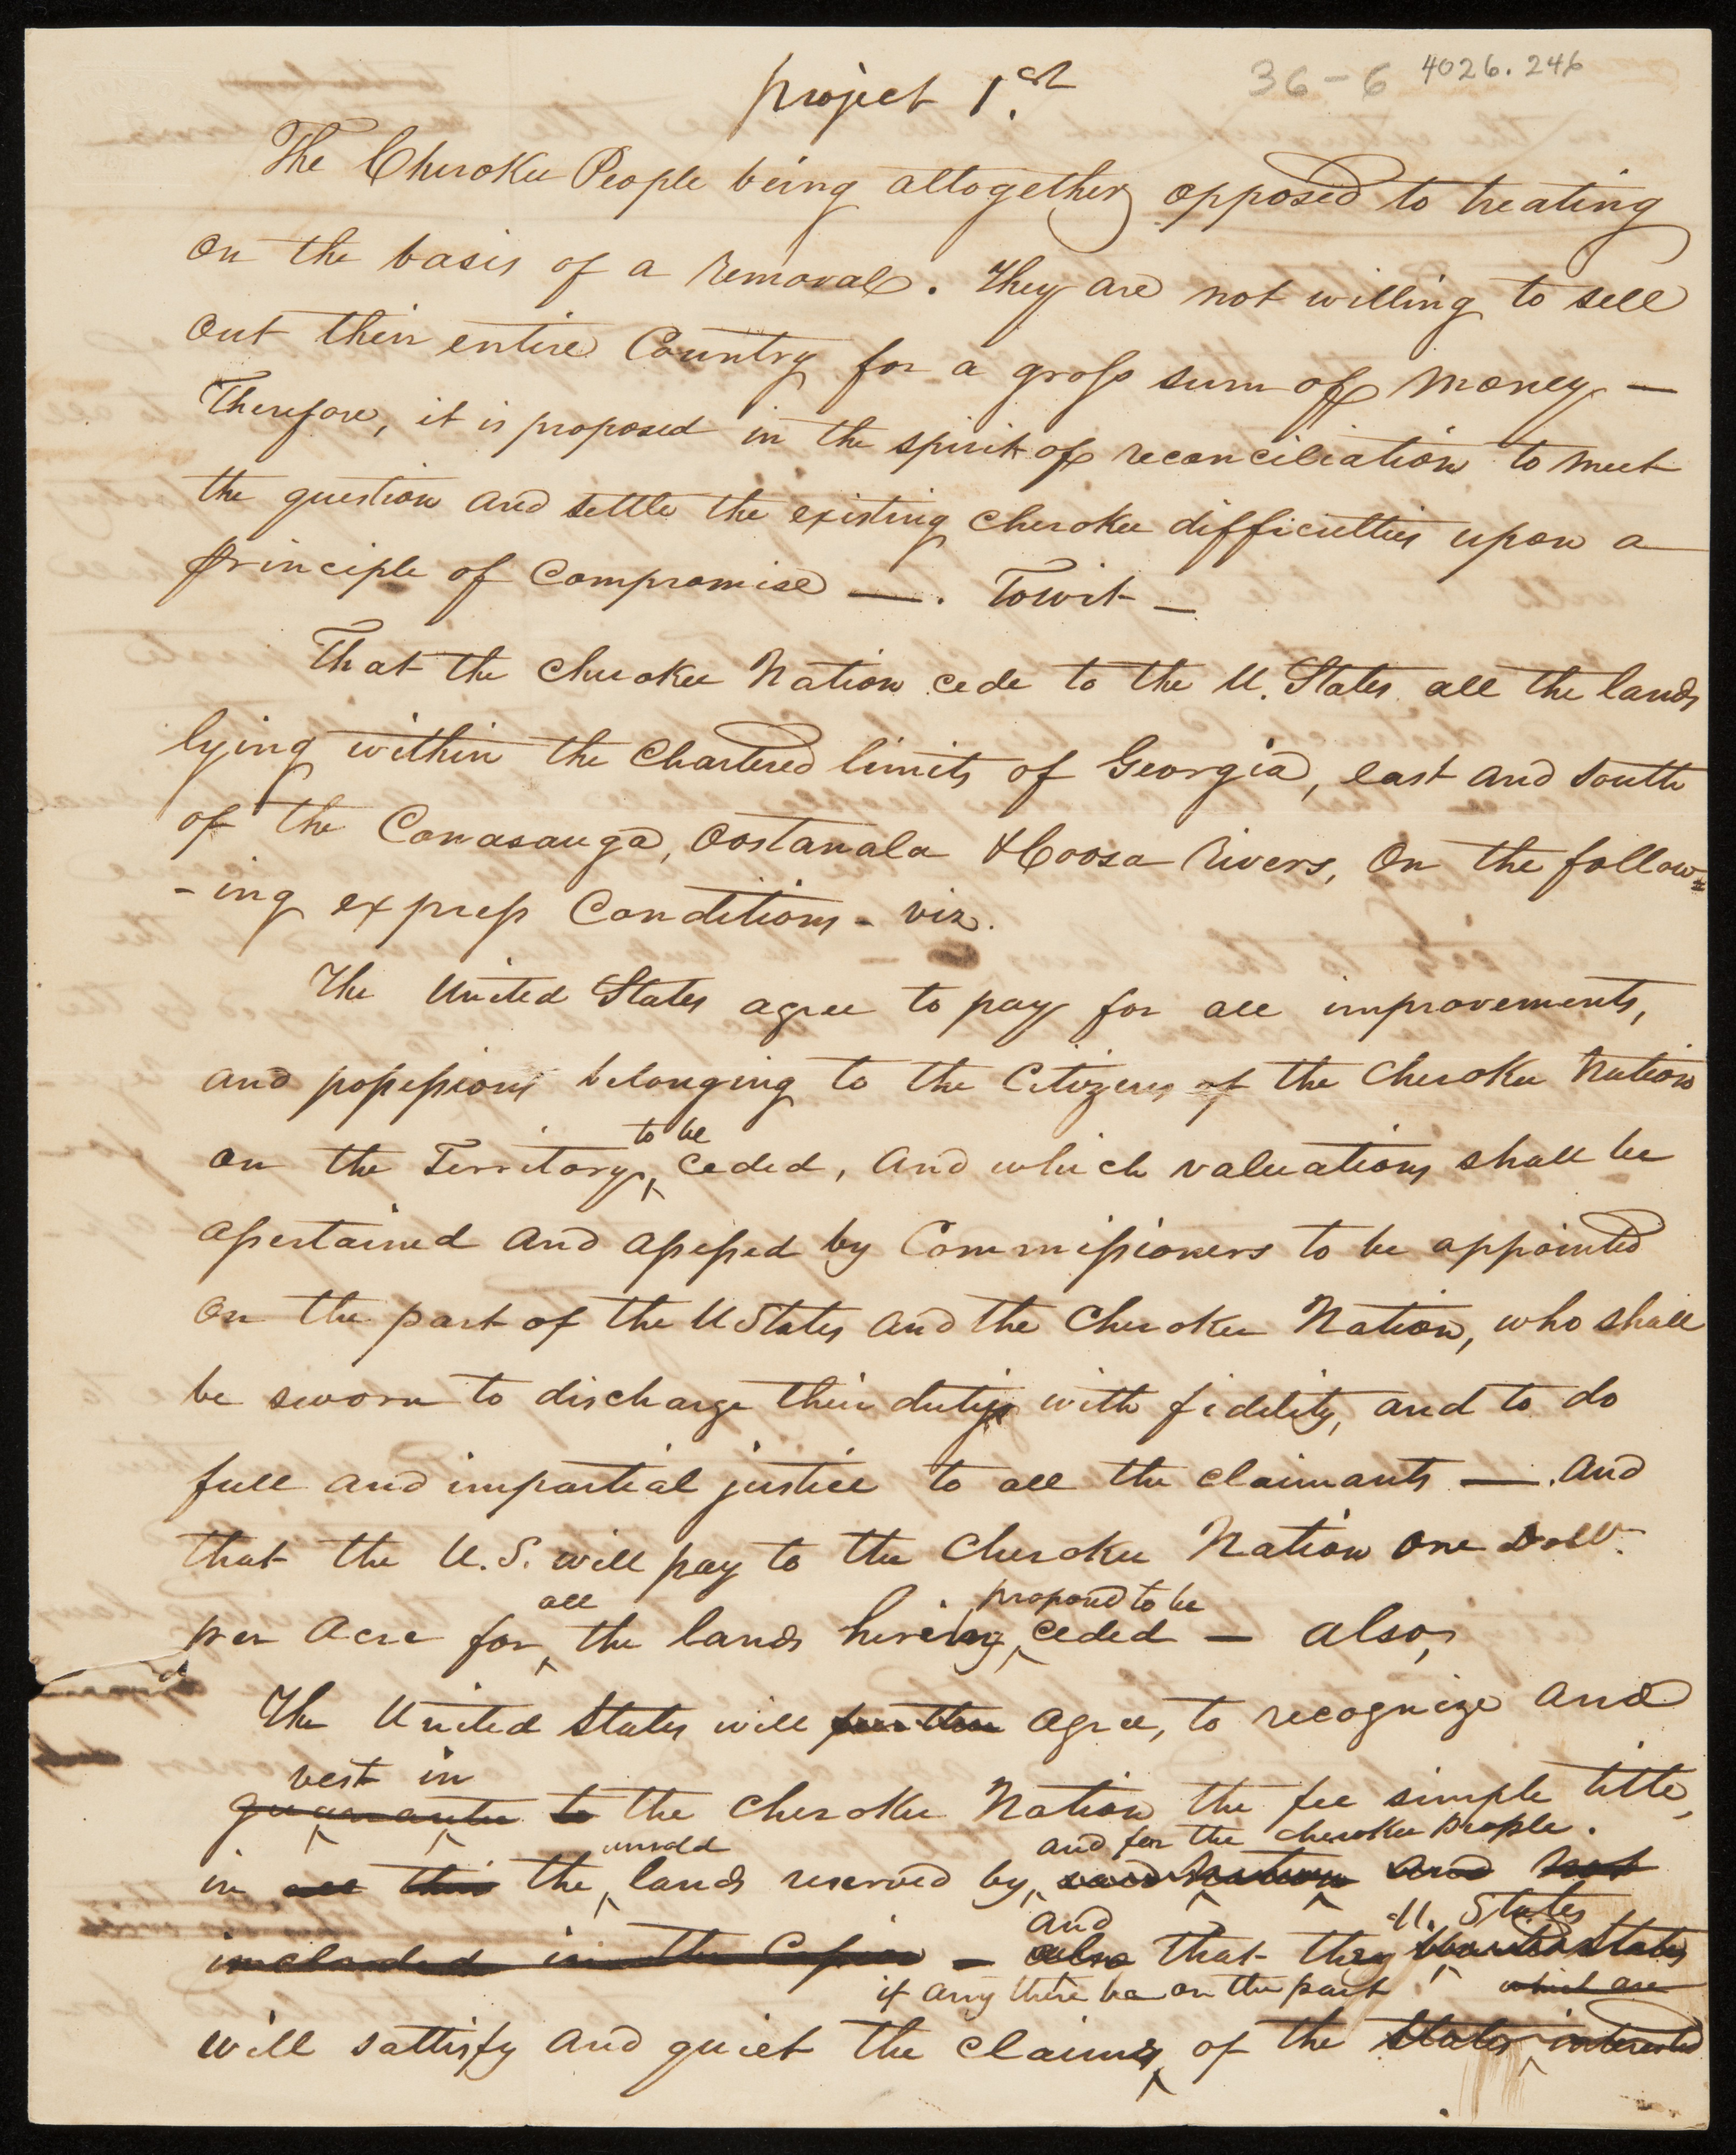 36-6 4026.246
project 1.st
The Cherokee People being altogether opposed to treating
on the basis of a removal. They are not willing to sell
out their entire Country for a gross sum of money —
Therefore, it is proposed in the spirit of reconciliation to meet
the question and settle the existing Cherokee difficulties upon a
principle of Compromise —. Towit —
That the Cherokee Nation cede to the U. States all the lands
lying within the Chartered limits of Georgia, east and south
of the Conasauga, Oostanala & Coosa Rivers, On the follow=
-ing express Conditions - viz.
The United States agree to pay for all improvements,
and possessions belonging to the Citizens of the Cherokee Nation
to be
on the Territory, ceded, and which valuations shall be
assertained and assessed by Commissioners to be appointed
on the part of the U States and the Cherokee Nation, who shall
be sworn to discharge their duties with fidelity, and to do
full and impartial justice to all the claimants —. And
that the U.S. will pay to the Cherokee Nation One Dollr
all proposed to be
per Acre for the lands hereby ceded — also,
The United States will further agree, to recognize and
vest in
guarantee to the Cherokee Nation the fee simple title,
unsold and for the Cherokee people.
in all this the lands reserved by said Nation and not
and U. States
included in the Cession — also that they United States
if any there be on the part which are
will sattisfy and quiet the claims of the States interested